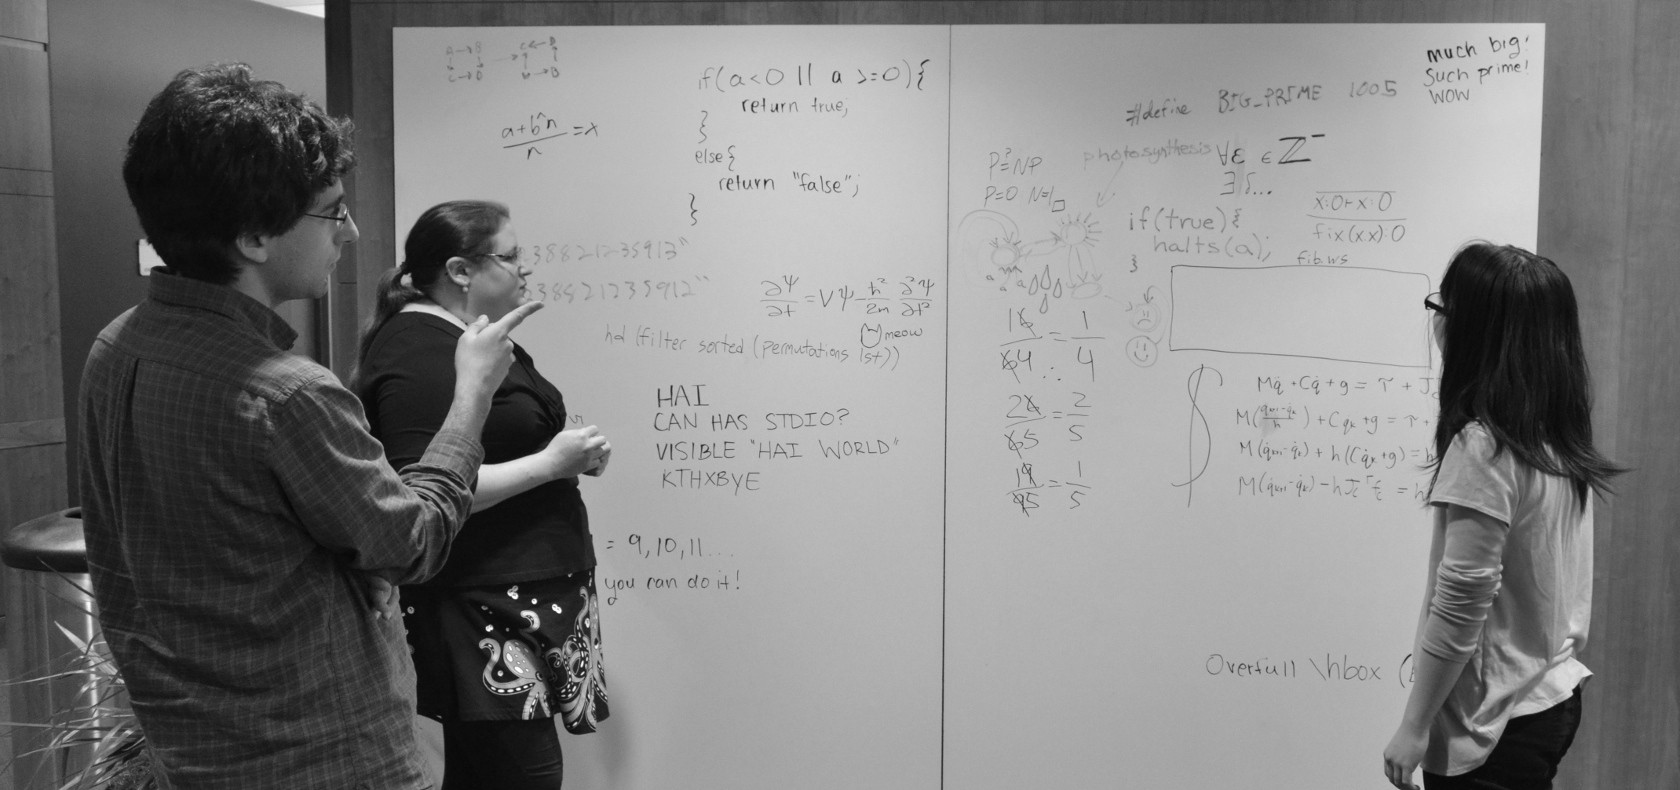 A→B
C→D
C←D
A→B
a+b^n
n
=x
if(a<0 || a >=0){
return true,
}
}
else{
return "false";
}
}
38821235913"
388212735912"
∂Ψ/∂t = VΨ - ħ²/2m ∂²Ψ/∂t²
meow
hd (filter sorted (permutations lst))
HAI
CAN HAS STDIO?
VISIBLE "HAI WORLD"
KTHXBYE
= 9,10,11...
you can do it!
much big!
Such prime!
WOW
#define BIG_PRIME 1005
P≟NP
P=0 N=1
photosynthesis
∀ε ∈ Z⁻
∃ δ...
if(true){
halts(a);
}
x:0⊢x:0
fix(x.x):0
fib.ws
16/64 = 1/4
∴
26/65 = 2/5
19/95 = 1/5
Mq̈ + Cq̇ + g = τ + J
+ Cqₖ + g = τ +
+ h(Cq̇ₖ+g) = h
= h
Overfull \hbox (